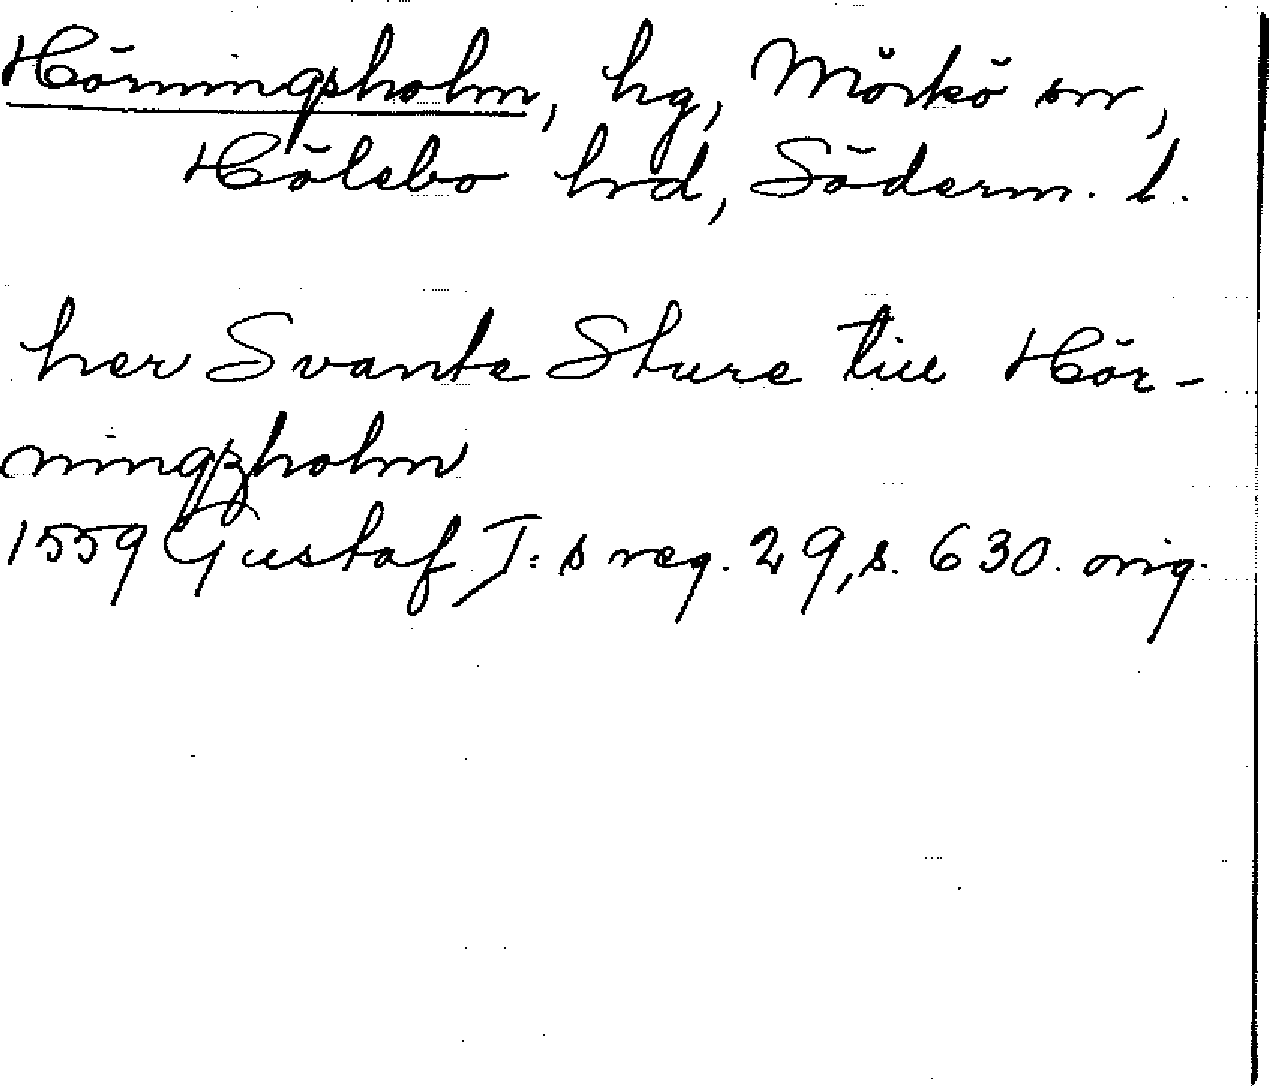 Hörningsholm, hg, Mörkö sn,
Hölebo hrd, Söderm. l.
her Svante Sture till Hör-
ningzholm
1559 Gustaf I:s reg. 29, s. 630. orig.